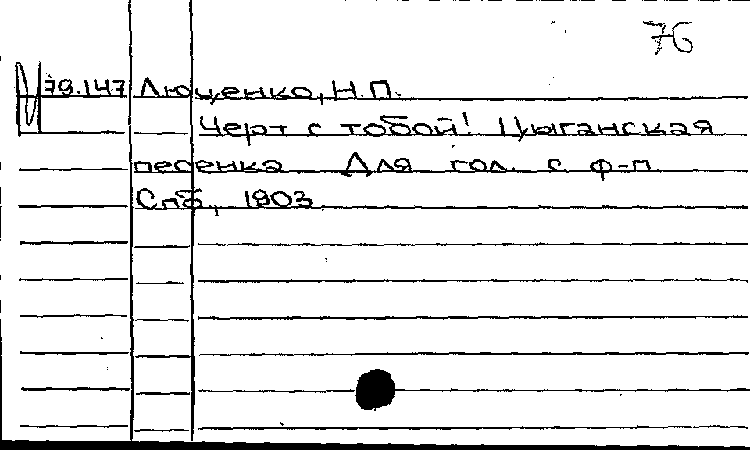 76
79.147 Люценко, Н.П.
Черт с тобой! Цыганская
песенка Для гол. с ф-п.
Спб, 1903